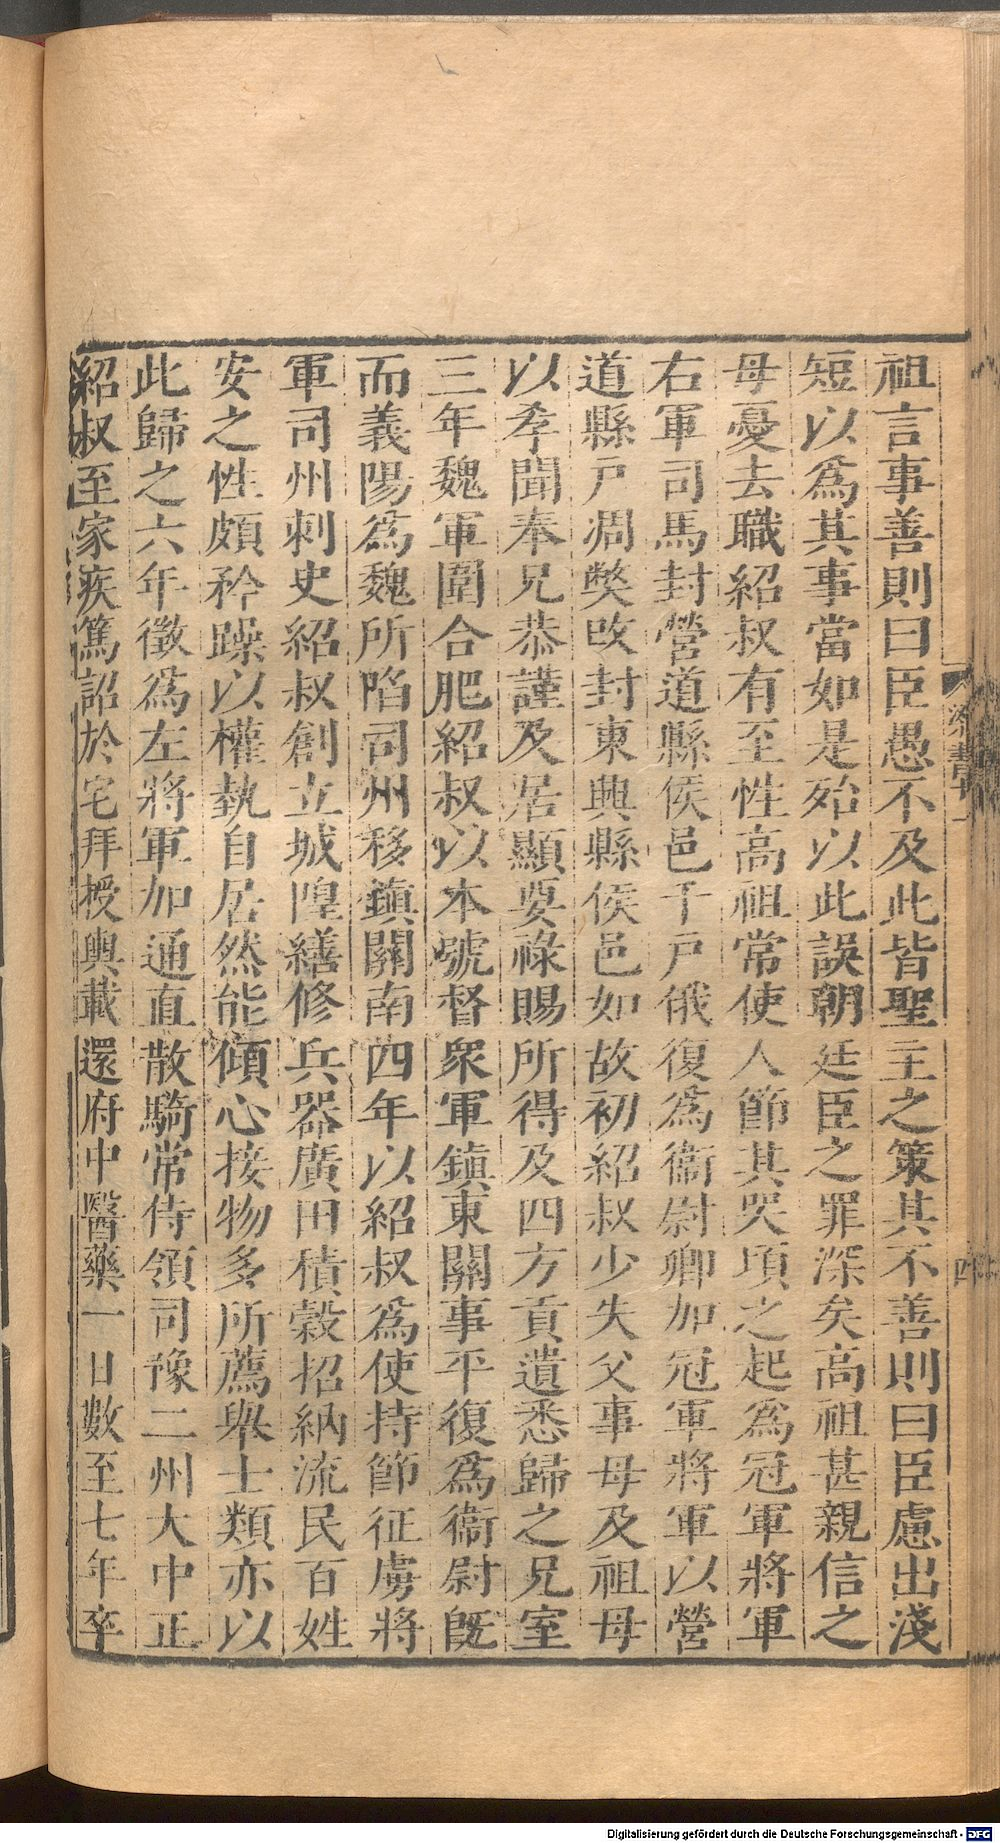 祖言事善則曰臣愚不及此皆聖主之策其不善則曰臣慮出淺
短以爲其事當如是殆以此誤朝廷臣之罪深矣高祖甚親信之
母憂去職紹叔有至性高祖常使人節其哭項之起爲冠軍將軍
右軍司馬封營道縣侯邑千戸俄復爲衞尉卿加冠軍將軍以營
道縣戸凋獘攺封東興縣侯邑如故初紹叔少失父事母及祖母
以孝聞奉兄恭謹及居顯要祿賜所得及四方貢遺悉歸之兄室
三年魏軍圍合肥紹叔以本號督衆軍鎮東關事平復爲衞尉旣
而義陽爲魏所陷司州移鎮關南四年以紹叔爲使持節征虜將
軍司州刺史紹叔創立城隍繕修兵器廣田積穀招納流民百姓
安之性頗矜躁以權埶自居然能傾心接物多所薦舉士類亦以
此歸之六年徵爲左將軍加通直散騎常侍領司豫二州大中正
紹叔至家疾篤詔於宅拜授輿載還府中醫藥一日數至七年卒
梁書十一
四
Digitalisierung gefördert durch die Deutsche Forschungsgemeinschaft - DFG